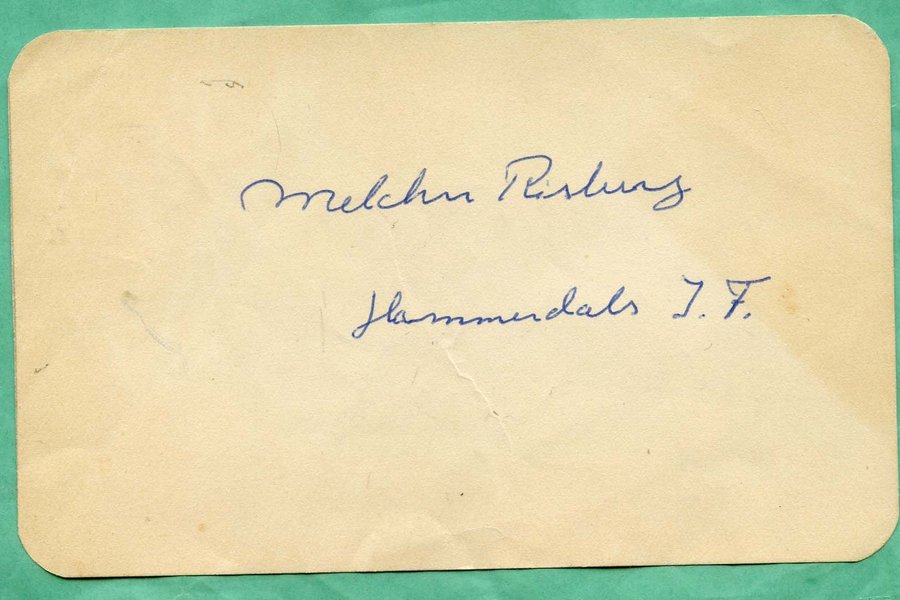 Melchor Risberg
Hammerdals I.F.